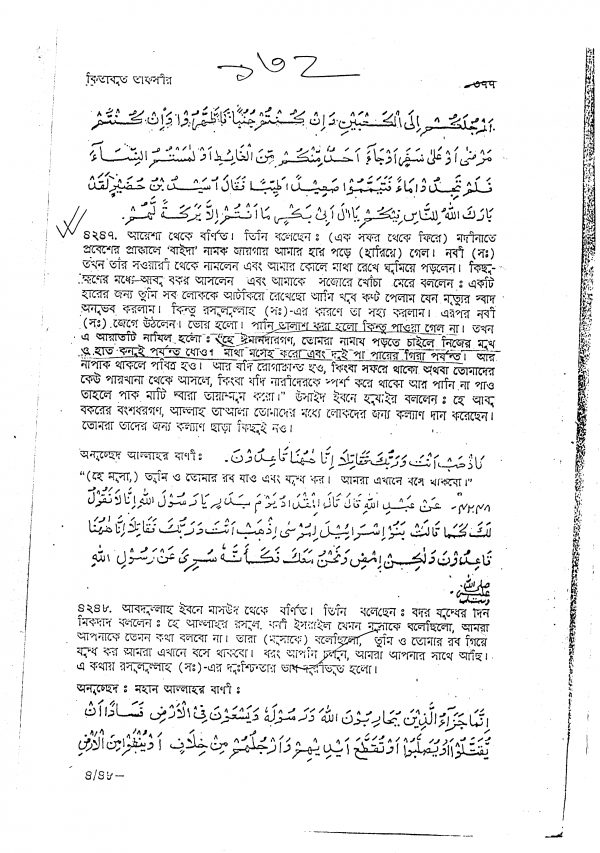 ১৩২
কিতাবুত তাফসীর ৩৭৭
اَرْجُلَكُمْ اِلَى الْكَعْبَيْنِ وَاِنْ كُنْتُمْ جُنُبًا فَاطَّهَّرُوْا وَاِنْ كُنْتُمْ
مَرْضٰى اَوْ عَلٰى سَفَرٍ اَوْجَاءَ اَحَدٌ مِّنْكُمْ مِّنَ الْغَائِطِ اَوْ لٰمَسْتُمُ النِّسَاءَ
فَلَمْ تَجِدُوْا مَاءً فَتَيَمَّمُوْا صَعِيْدًا طَيِّبًا فَقَالَ اُسَيْدُ بْنُ حُضَيْرٍ لَقَدْ
بَارَكَ اللهُ لِلنَّاسِ فِيْكُمْ يَا اٰلَ اَبِىْ بَكْرٍ مَا اَنْتُمْ اِلَّا بَرَكَةٌ لَّهُمْ.
৪২৪৭. আয়েশা থেকে বর্ণিত। তিনি বলেছেন: (এক সফর থেকে ফিরে) মদীনাতে
প্রবেশের প্রাক্কালে 'বাইদা' নামক জায়গায় আমার হার পড়ে (হারিয়ে) গেল। নবী (সঃ)
তখন তাঁর সওয়ারী থেকে নামলেন এবং আমার কোলে মাথা রেখে ঘুমিয়ে পড়লেন। কিছু-
ক্ষণের মধ্যে আবু বকর আসলেন এবং আমাকে সজোরে খোঁচা মেরে বললেন: একটি
হারের জন্য তুমি সব লোককে আটকিয়ে রেখেছো আমি খুব কষ্ট পেলাম যেন মৃত্যুর স্বাদ
অনুভব করলাম। কিন্তু রসূলুল্লাহ (সঃ)-এর কারণে তা সহ্য করলাম। এরপর নবী
(সঃ) জেগে উঠলেন। ভোর হলো। পানি তালাশ করা হলো কিন্তু পাওয়া গেল না। তখন
এ আয়াতটি নাযিল হলো: "হে ঈমানদারগণ, তোমরা নামায পড়তে চাইলে নিজের মুখ
ও হাত কনুই পর্যন্ত ধোও। মাথা মসেহ করো এবং দুই পা পায়ের গিরা পর্যন্ত। আর
নাপাক থাকলে পবিত্র হও। আর যদি রোগাক্রান্ত হও, কিংবা সফরে থাকো অথবা তোমাদের
কেউ পায়খানা থেকে আসলে, কিংবা যদি নারীদেরকে স্পর্শ করে থাকো আর পানি না পাও
তাহলে পাক মাটি দ্বারা তায়াম্মুম করো।" উসাইদ ইবনে হুযাইর বললেন: হে আবু
বকরের বংশধরগণ, আল্লাহ তা'আলা তোমাদের মধ্যে লোকদের জন্য কল্যাণ দান করেছেন।
তোমরা তাদের জন্য কল্যাণ ছাড়া কিছুই নও।
অনুচ্ছেদ: আল্লাহর বাণী: فَاذْهَبْ اَنْتَ وَرَبُّكَ فَقَاتِلَا اِنَّا هٰهُنَا قَاعِدُوْنَ.
"(হে মূসা,) তুমি ও তোমার রব যাও এবং যুদ্ধ কর। আমরা এখানে বসে থাকবো।"
٤٢٤٨. عَنْ عَبْدِ اللهِ قَالَ قَالَ الْمِقْدَادُ يَوْمَ بَدْرٍ يَا رَسُوْلَ اللهِ اِنَّا لَا نَقُوْلُ
لَكَ كَمَا قَالَتْ بَنُوْ اِسْرَائِيْلَ لِمُوْسٰى اِذْهَبْ اَنْتَ وَرَبُّكَ فَقَاتِلَا اِنَّا هٰهُنَا
قَاعِدُوْنَ وَلٰكِنْ اِمْضِ وَنَحْنُ مَعَكَ فَكَاَنَّهٗ سُرِّىَ عَنْ رَسُوْلِ اللهِ
صلى الله عليه وسلم
৪২৪৮. আবদুল্লাহ ইবনে মাসউদ থেকে বর্ণিত। তিনি বলেছেন: বদর যুদ্ধের দিন
মিকদাদ বললেন: হে আল্লাহর রসূল, বনী ইসরাইল যেমন মূসাকে বলেছিলো, আমরা
আপনাকে তেমন কথা বলবো না। তারা (মূসাকে) বলেছিলো, তুমি ও তোমার রব গিয়ে
যুদ্ধ কর আমরা এখানে বসে থাকবো। বরং আপনি চলুন, আমরা আপনার সাথে আছি।
এ কথায় রসূলুল্লাহ (সঃ)-এর দুশ্চিন্তার ভাব দূরীভূত হলো।
অনুচ্ছেদ: মহান আল্লাহর বাণী:
اِنَّمَا جَزَاءُ الَّذِيْنَ يُحَارِبُوْنَ اللهَ وَرَسُوْلَهٗ وَيَسْعَوْنَ فِى الْاَرْضِ فَسَادًا اَنْ
يُّقَتَّلُوْا اَوْ يُصَلَّبُوْا اَوْ تُقَطَّعَ اَيْدِيْهِمْ وَاَرْجُلُهُمْ مِّنْ خِلَافٍ اَوْ يُنْفَوْا مِنَ الْاَرْضِ
৪/৪৮—